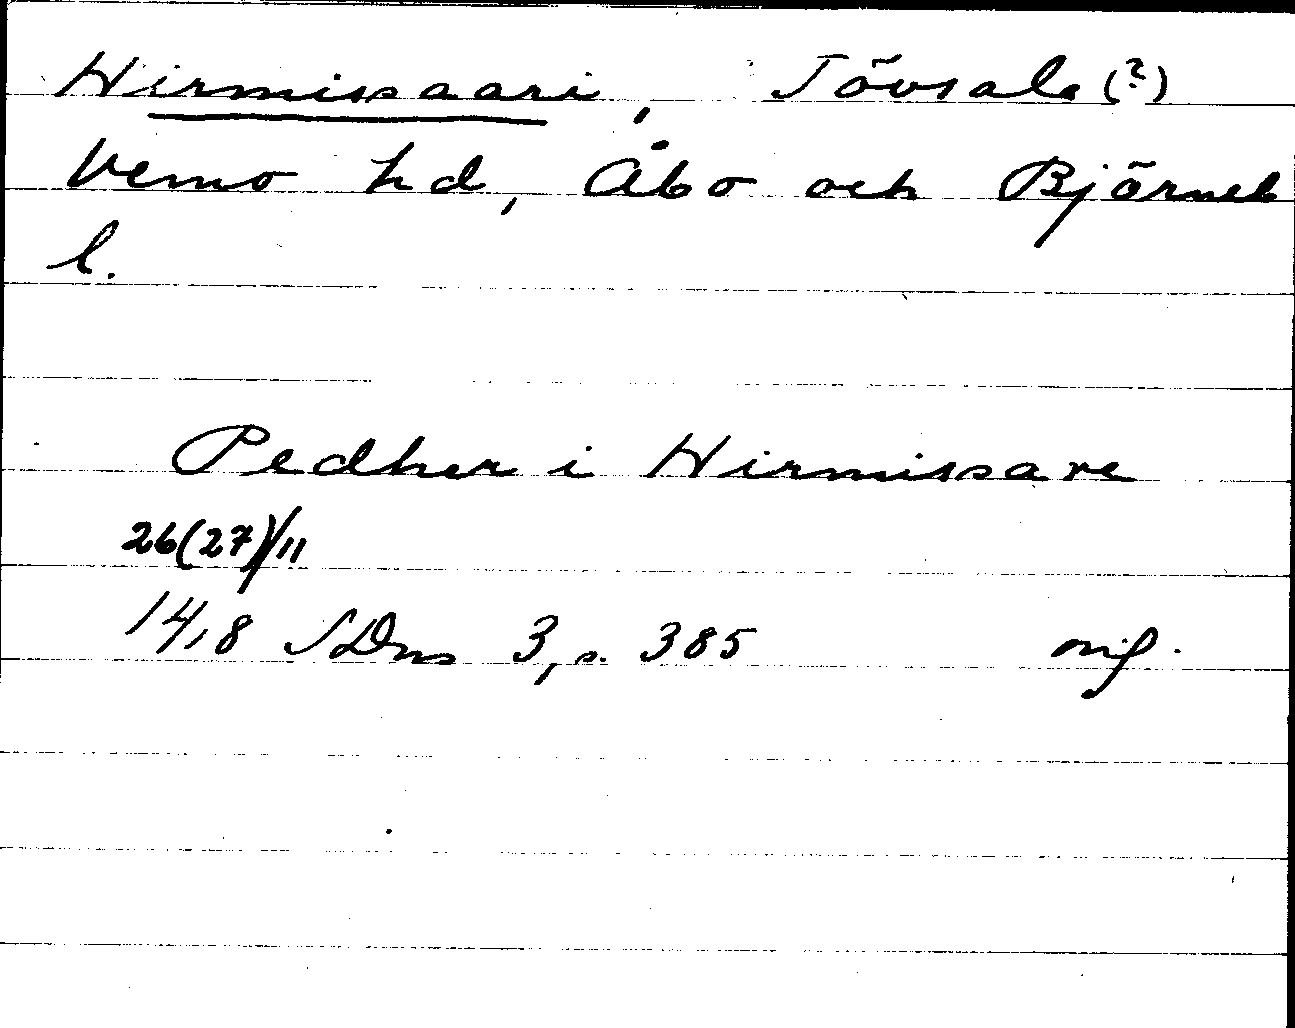 Hirmissaari, Tövsala (?)
Vemo hd, Åbo och Björneb
l.
Pedher i Hirmissare
26(27)/11
14,8 SDns 3, s. 385 orig.